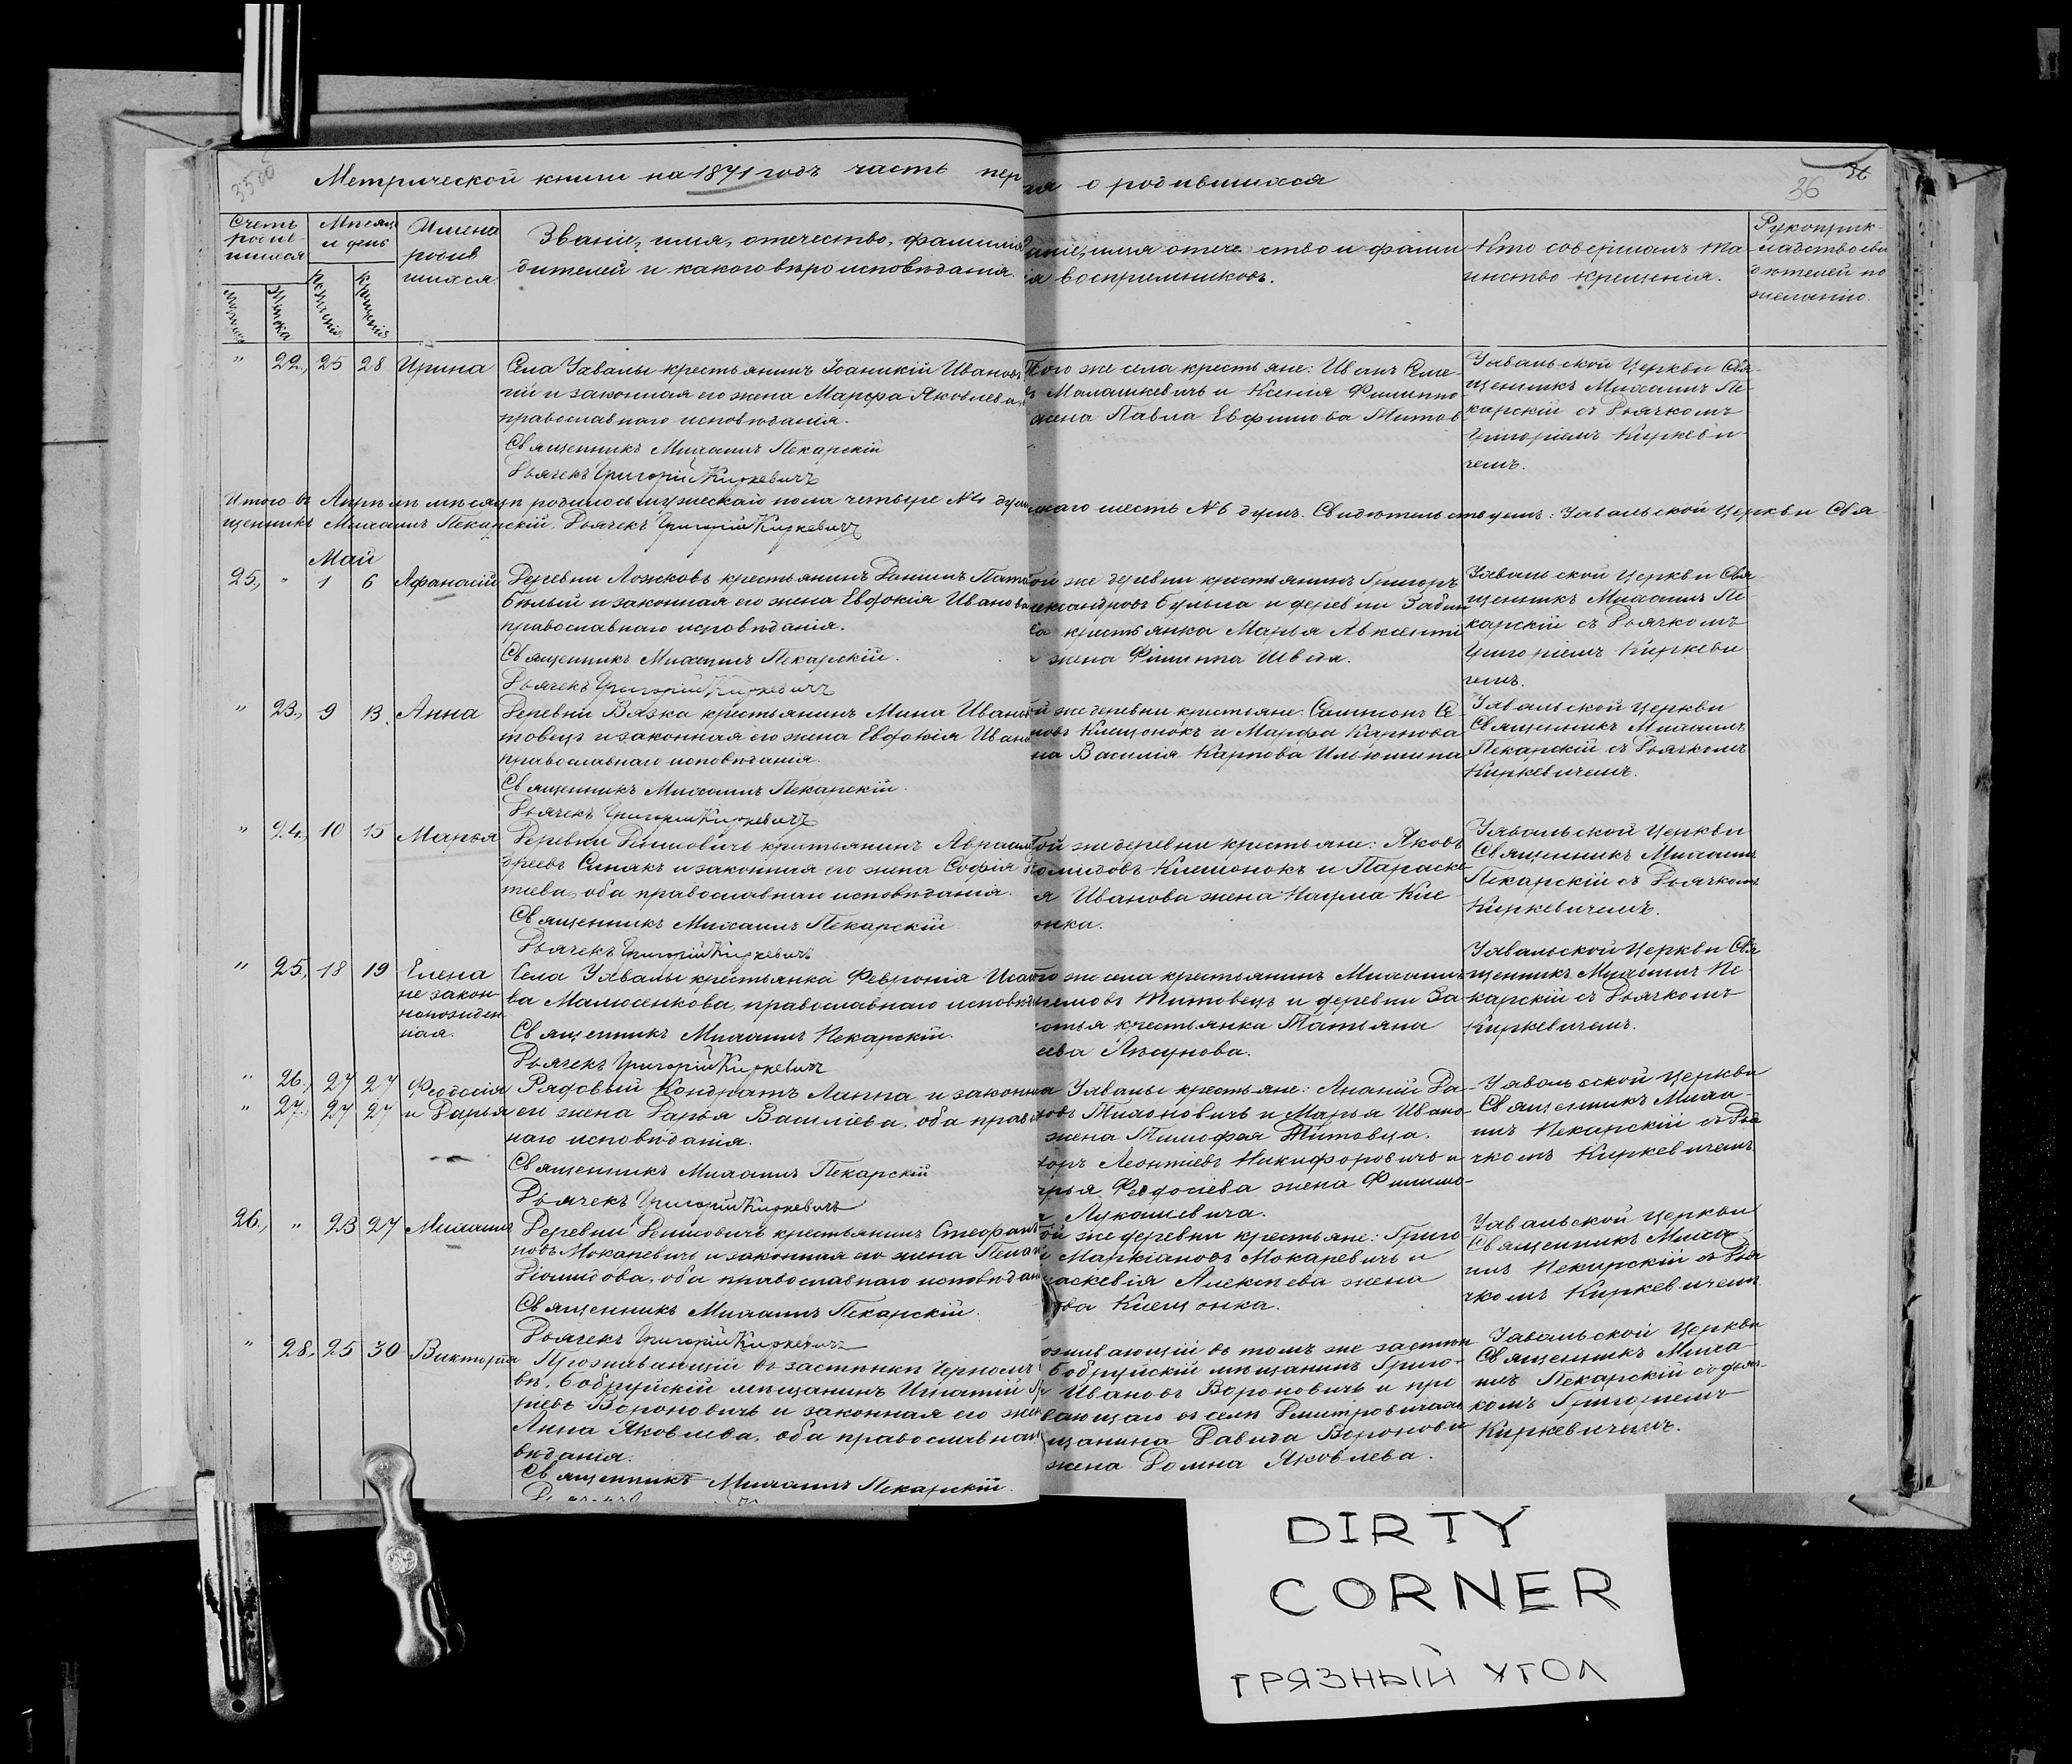 Метрической книги на 1871 годъ часть пер
ая о родившихся
36
Счетъ родившихся
Мѣсяцъ и день
Имена родившихся.
Званіе, имя, отечество, фамилія
дителей и какого вѣроисповѣданія.
аніе, имя отечество и фами
ія воспріемниковъ.
Кто совершалъ та-
инство крещенія.
Рукоприк-
ладство сви
дѣтелей по
желанію.
" 22, 25 28 Ирина
Села Уваlы крестьянинъ Іоаникій Ивановъ
законная его жена Марфа Яковлева,
православнаго исповѣданія.
Священникъ Михаилъ Пекарскій
Дьячекъ Григорій Киркевичъ
Того же села крестьяне: Иванъ Семе-
Малашкевичъ и Ксенія Филиппо
жена Павла Евфимова Титов
Священникъ Михаилъ Пе-
карскій съ Дьячкомъ
Григоріемъ Киркеви-
чемъ.
Итого въ Апрѣлѣ мѣсяцѣ родилось мужескаго пола четыре №4 душ
наго шесть №6 душъ. Свидѣтельствуемъ: Церкви Свя-
щенникъ Михаилъ Пекарскій. Дьячекъ Григорій Киркевичъ
Май
25, " 1 6 Афанасій
Деревни Ложковъ крестьянинъ Даніилъ
Бѣлый и законная его жена Евдокія Иванова
православнаго исповѣданія.
Священникъ Михаилъ Пекарскій.
Дьячекъ Григорій Киркевичъ
ой же деревни крестьянинъ Григорій
лександровъ Булыга и деревни
крестьянка Марья Авксенті
жена Филиппа Швеця.
Церкви Свя-
щенникъ Михаилъ Пе-
карскій съ Дьячкомъ
Григоріемъ Киркеви
чемъ.
" 23, 9 13 Анна
Деревни Вязка крестьянинъ Мина Иванов
товецъ и законная его жена Евдокія Ивано
православнаго исповѣданія.
Священникъ Михаилъ Пекарскій.
Дьячекъ Григорій Киркевичъ
й же деревни крестьяне: Сампсонъ Се-
новъ Клещонокъ и Марфа Карпова
на Василія Карпова Илькшина
Церкви
Священникъ Михаилъ
Пекарскій съ Дьячкомъ
Киркевичемъ.
" 24, 10 15 Марья
Деревни Денисовичъ крестьянинъ Авраамъ
дреевъ Синякъ и законная его жена Софія
оба православнаго исповѣданія.
Священникъ Михаилъ Пекарскій
Дьячекъ Григорій Киркевичъ
той же деревни крестьяне: Яковъ
Клещонокъ и Параске
я Иванова жена Наума Кле
онка.
Церкви
Священникъ Михаилъ
Пекарскій съ Дьячкомъ
Киркевичемъ.
" 25, 18 19 Елена
не закон-
норожден
ная.
крестьянка Февронія
ва Малюсенкова, православнаго исповѣд
Священникъ Михаилъ Пекарскій.
Дьячекъ Григорій Киркевичъ
го же села крестьянинъ Михаилъ
Титовецъ и деревни За-
крестьянка Татьяна
Церкви Свя
щенникъ Михаилъ Пе-
карскій съ Дьячкомъ
Киркевичемъ.
" 26, 27 27 Феодосія
" 27, 27 27 и Дарья
Рядовый Кондратъ Лаппа и законна
его жена Дарья Василіева, оба прав
наго исповѣданія.
Священникъ Михаилъ Пекарскій
Дьячекъ Григорій Киркевичъ
крестьяне: Ананій Да-
Тихоновичъ и Марья Ивано-
жена Тимофея Титовца.
Леонтіевъ Никифоровичъ и
арья Федосіева жена Филимо-
Лукашевича.
Церкви
Священникъ Миха-
илъ Пекарскій съ Дья
чкомъ Киркевичемъ
26, " 23 27 Михаилъ
Деревни Денисовичъ крестьянинъ Стефанъ
новъ Мокаревичъ и законная его жена Пелаг
Діомидова, оба православнаго исповѣдан
Священникъ Михаилъ Пекарскій.
Дьячекъ Григорій Киркевичъ
ой же деревни крестьяне: Григо
Маркіановъ Мокаревичъ и
раскевія Алексѣева жена
ова Клещонка.
Церкви
Священникъ Миха-
илъ Пекарскій съ Дья
чкомъ Киркевичемъ
" 28, 25 30 Викторія
Проживающій въ застѣнкѣ Черномъ
вѣ, Бобруйскій мѣщанинъ Игнатій Гр
ріевъ Вороновичъ и законная его жен
Анна Яковлева, оба православнаг
вѣданія.
Священникъ Михаилъ Пекарскій.
оживающій въ томъ же застѣн
Бобруйскій мѣщанинъ Григо-
Ивановъ Вороновичъ и про
вающаго въ селѣ Дмитровичахъ
щанина Давида Воронови
жена Домна Яковлева.
Церкви
Священникъ Миха-
илъ Пекарскій съ дьяч-
комъ Григоріемъ
Киркевичемъ.
DIRTY
CORNER
ГРЯЗНЫЙ УГОЛ